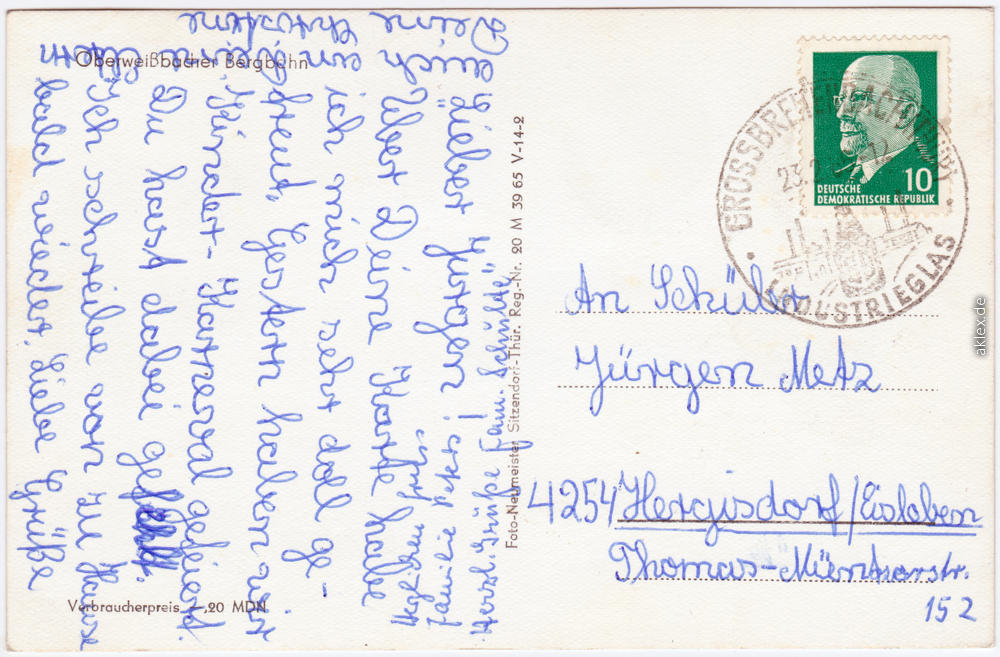 Oberweißbacher Bergbahn
Lieber Jürgen!
Über Deine Karte habe
ich mich sehr doll ge-
freut. Gestern haben wir
Kinder-Karneval gefeiert.
Du hast dabei gefehlt.
Ich schreibe von zu Hause
bald wieder. Liebe Grüße
Deine
Christine
Familie Peters!
Herzl. Grüße Fam. Schulde
Verbraucherpreis –,20 MDN
Foto-Neumeister Sitzendorf-Thür. Reg.-Nr. 20 M 39 65 V-14-2
DEUTSCHE
DEMOKRATISCHE REPUBLIK
10
GROSSBREITENBACH (THÜR)
23.2.
INDUSTRIEGLAS
An Schüler
Jürgen Metz
4254 Hergisdorf/Eisleben
Thomas-Müntzerstr.
152
aklex.de